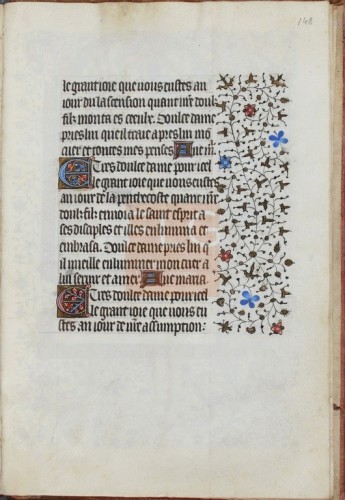 148
le grant ioie que uous eustes au
iour du lascension quant vr̄e doulz
filz monta es cieulx. Doulce dame
pries lui que il traie apres lui mō
cuer et toutes mes penses Aue m̄.
E Tres doulce dame pour icel
le grant ioie que uous eustes
au iour de la penthecoste quant vr̄e
doulz filz enuoia le saint esprit a
ses disciples et il les enlumina et
embrasa. Doulce dame pries lui q̄
il vueille enluminer mon cuer a
lui seruir et amer. Aue maria.
E Tres doulce dame pour icel
le grant ioie que uous eu
stes au iour de vr̄e assumption: